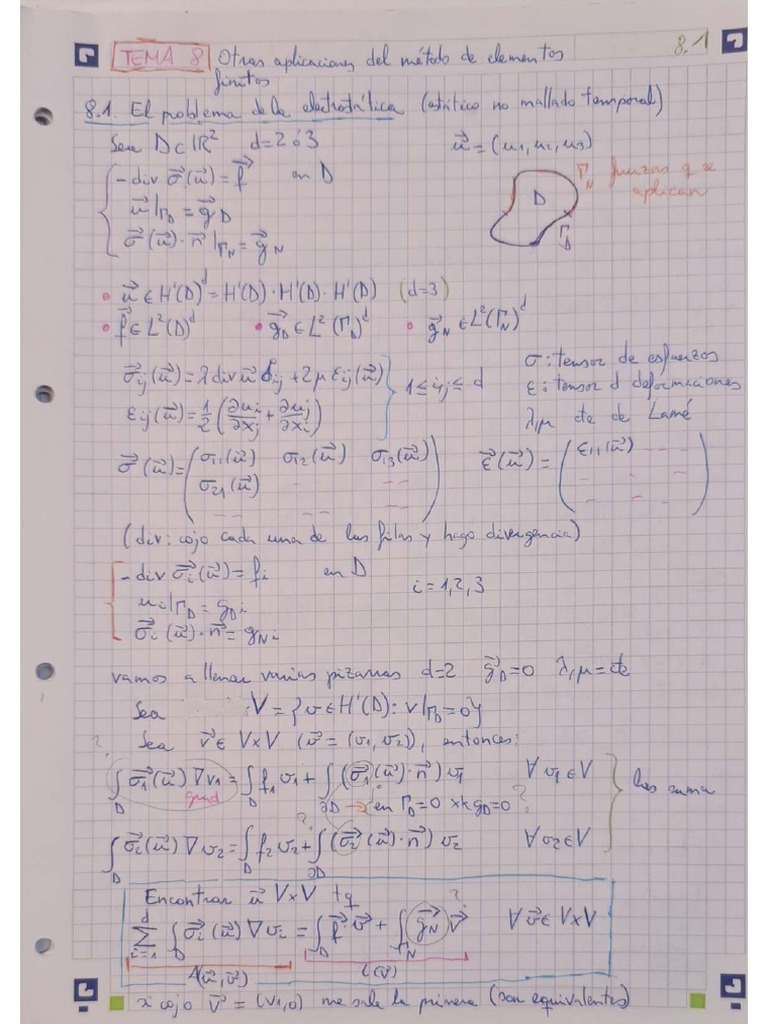 8.1
TEMA 8 Otras aplicaciones del método de elementos
finitos
8.1. El problema de la electrostática (estático no mallado temporal)
Sea D⊂ℝ² d=2 ó 3 u⃗ = (u₁, u₂, u₃)
-div σ⃗(u⃗) = f⃗ en D
u⃗|Γ_D = g⃗_D
σ⃗(u⃗)·n⃗|Γ_N = g⃗_N
D Γ_N fuerzas que se
aplican
Γ_D
• u⃗ ∈ H¹(D)^d = H¹(D)·H¹(D)·H¹(D) (d=3)
• f⃗ ∈ L²(D)^d • g⃗_D ∈ L²(Γ_D)^d • g⃗_N ∈ L²(Γ_N)^d
σ⃗ij(u⃗) = λ div u⃗ δij + 2μ εij(u⃗) 1≤i,j≤d
εij(u⃗) = 1/2 (∂ui/∂xj + ∂uj/∂xi)
σ: tensor de esfuerzos
ε: tensor d deformaciones
λ,μ cte de Lamé
σ⃗(u⃗) = (σ₁₁(u⃗) σ₁₂(u⃗) σ₁₃(u⃗) ε⃗(u⃗) = (ε₁₁(u⃗) -- --
σ₂₁(u⃗) - -- -- -- --
-- - --) -- -- --)
(div: cojo cada una de las filas y hago divergencia)
-div σ⃗i(u⃗) = fi en D i = 1,2,3
ui|Γ_D = g_Di
σ⃗i(u⃗)·n⃗ = g_Ni
vamos a llenar varias pizarras d=2 g⃗_D=0 λ,μ=cte
Sea V = {v∈H¹(D): v|Γ_D=0}
Sea v⃗∈V×V (v⃗ = (v₁, v₂)), entonces:
?
∫_D σ⃗₁(u⃗)∇v₁ = ∫_D f₁v₁ + ∫_∂D (σ⃗₁(u⃗)·n⃗)v₁ ∀v₁∈V
grad → en Γ_D=0 xk g_D=0 ?
las suma
?
∫_D σ⃗₂(u⃗)∇v₂ = ∫_D f₂v₂ + ∫_∂D (σ⃗₂(u⃗)·n⃗)v₂ ∀v₂∈V
Encontrar u⃗ V×V tq
∑_{i=1}^d ∫_D σ⃗i(u⃗)∇vi = ∫_D f⃗·v⃗ + ∫_Γ_N g⃗_N v⃗ ? ∀v⃗∈V×V
A(u⃗,v⃗) L(v⃗)
si cojo v⃗ = (v₁,0) me sale la primera (son equivalentes)